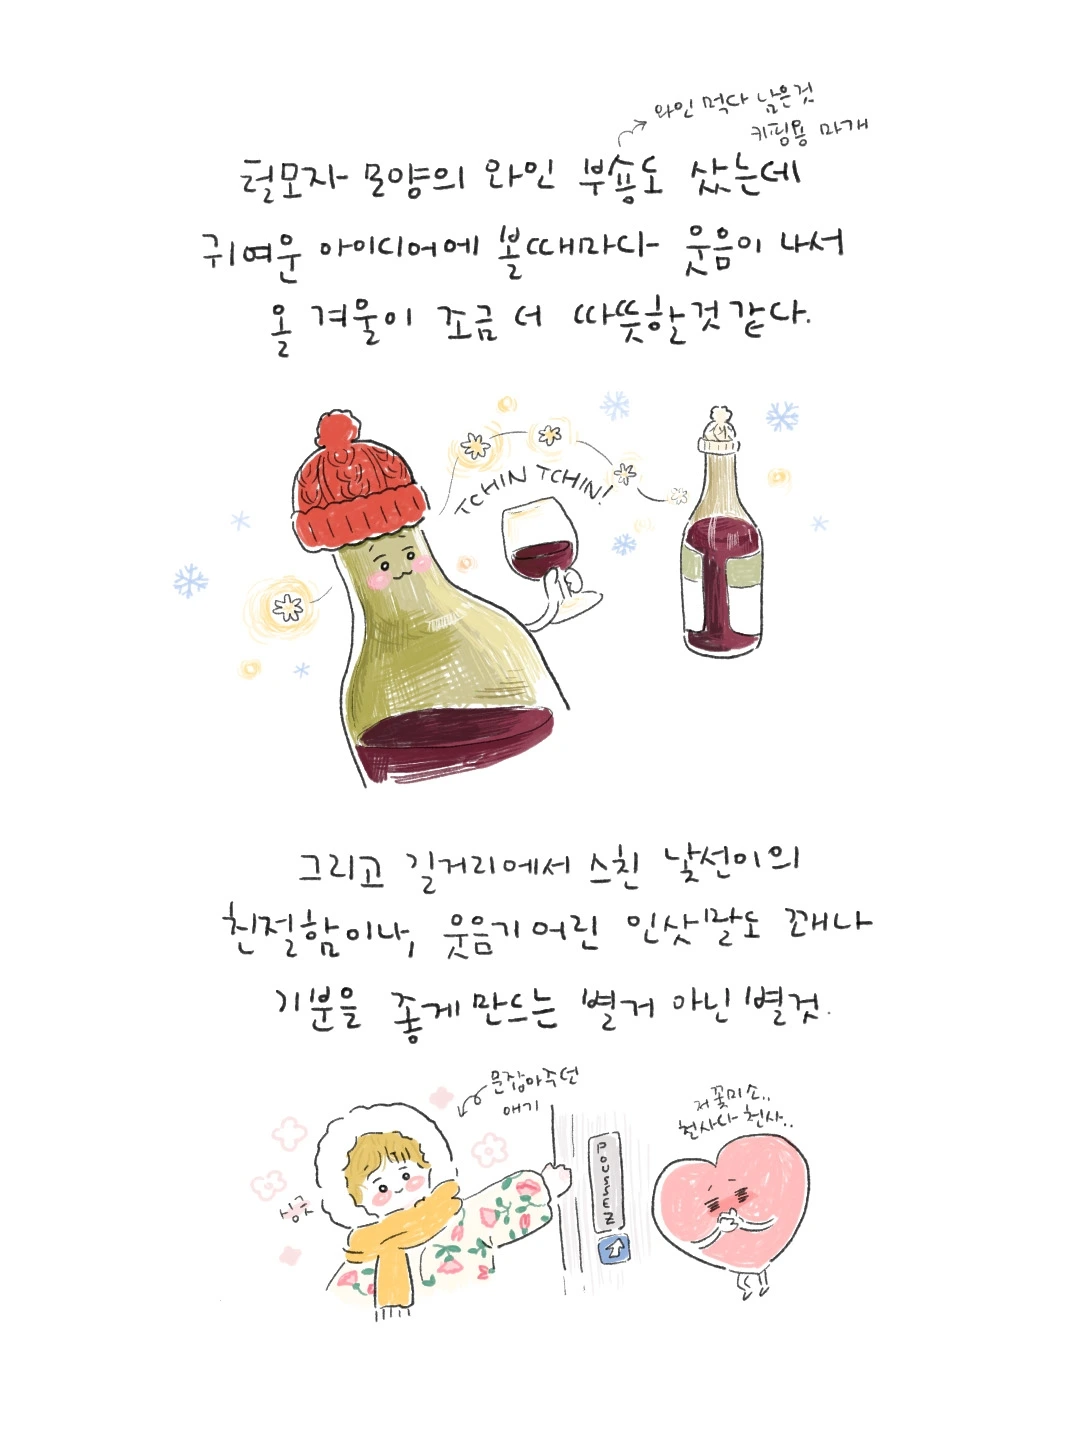 와인 먹다 남은것
키핑용 마개
털모자 모양의 와인 부숑도 샀는데
귀여운 아이디어에 볼때마다 웃음이 나서
올 겨울이 조금 더 따뜻할것 같다.
TCHIN TCHIN!
그리고 길거리에서 스친 낯선이의
친절함이나, 웃음기 어린 인삿말도 꽤나
기분을 좋게 만드는 별거 아닌 별것.
문잡아주던
애기
싱긋
POUSSEZ
저 꽃미소..
천사다 천사..